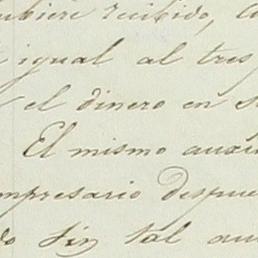 ubiere recibido, co
igual al tres
el dinero en s
El mismo auxi
mpresario despue
do sin tal au